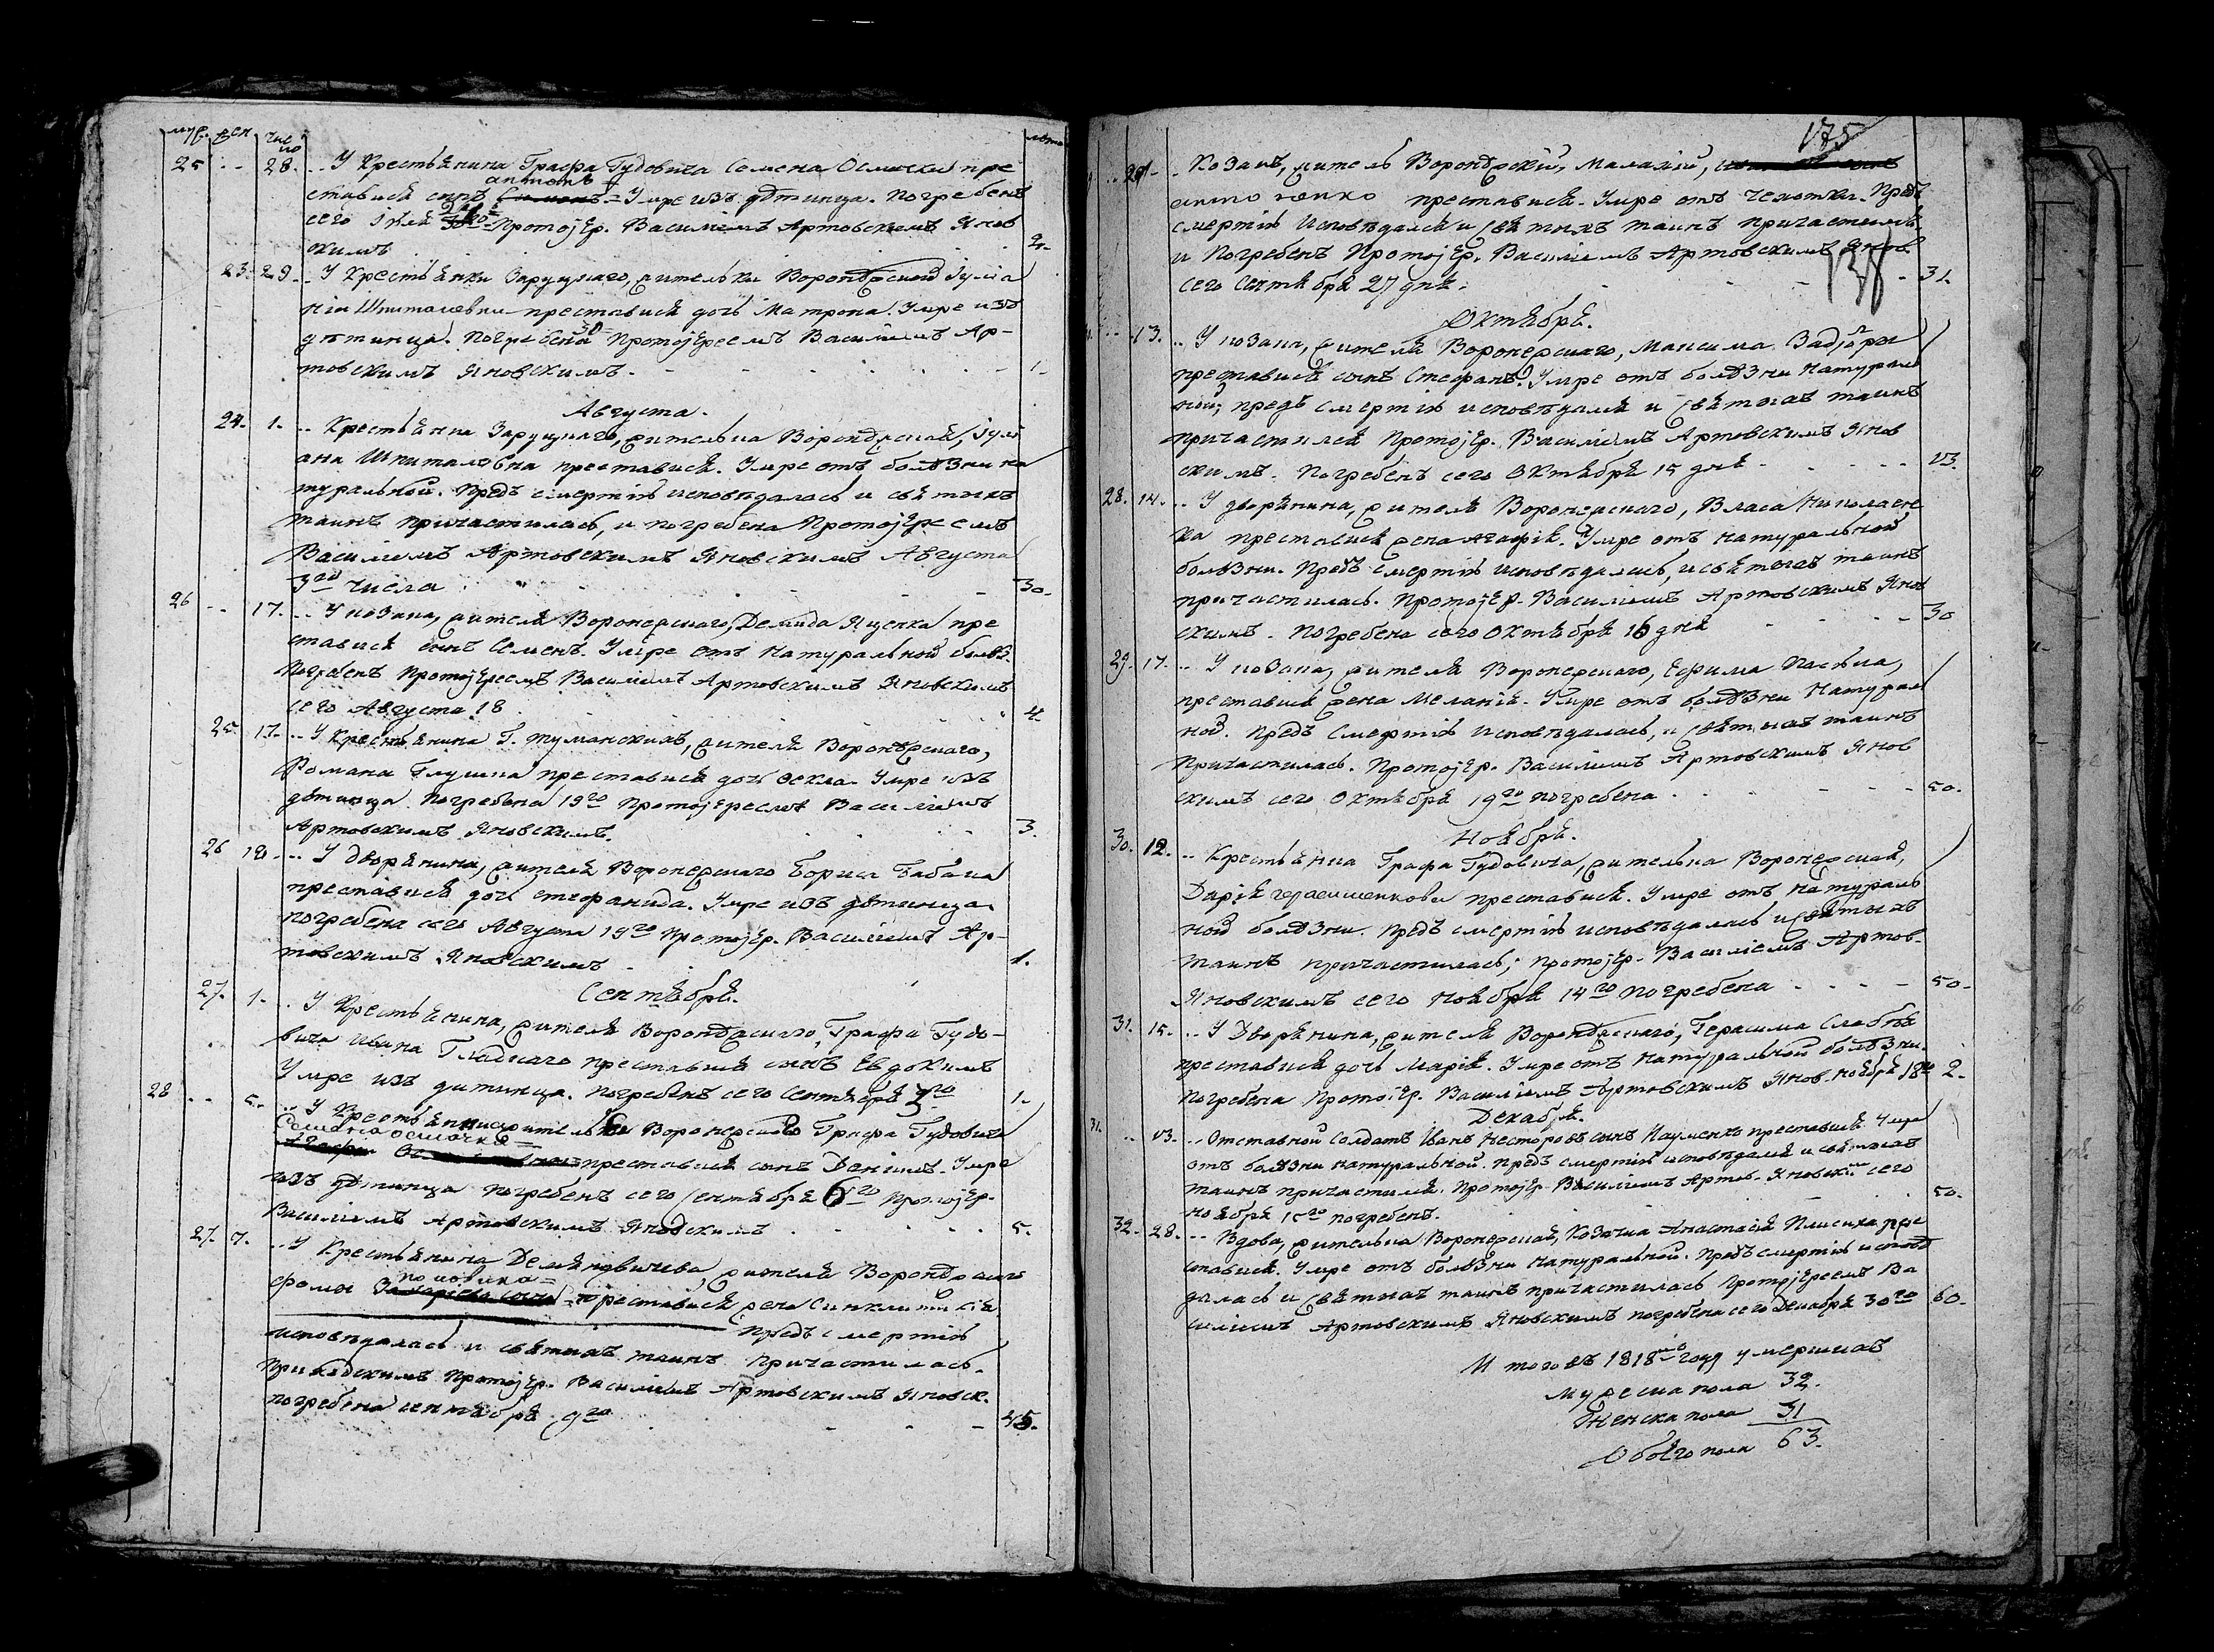 муж. жен. число лѣта
25 -- 28. .. У Крестьянина Графа Гудовича Семена Осмачки пре
антонъ
ставися сынъ Умре изъ дѣтинца. Погребенъ
сего Іюля Протоіер. Василіемъ Артовскимъ Янов
скимъ 2.
23. 29. .. У Крестьянки Заруцкаго, жительки Воронѣжской Іулiа
ніи Шпиталевни преставися дочь Матрона. Умре изъ
дѣтинца. Погребена 30 Протоіереемъ Василіемъ Ар-
товскимъ Яновскимъ. 1.
Августа.
24. 1. .. Крестьянка Заруцкаго, жителька Воронѣжская, Іулі
ана Шпиталевна преставися. Умре отъ болѣзни на
туральной. Предъ смертію исповѣдалась и святыхъ
таинъ причастилась, и погребена Протоіереемъ
Василіемъ Артовскимъ Яновскимъ Августа
3го числа 30.
26 -- 17. .. У козака, жителя Воронежскаго, Демида Яценка пре
ставися сынъ Семенъ. Умре отъ натуральной болѣз.
Погребенъ Протоіереемъ Василіемъ Артовскимъ Яновскимъ
сего Августа 18 4.
25. 17. .. У Крестьянина Г. Туманскихъ, жителя Воронѣжскаго,
Романа Глушка преставися дочь Ѳекла. Умре изъ
дѣтинца. Погребена 19го Протоіереемъ Василіемъ
Артовскимъ Яновскимъ. 3.
26 18. .. У дворянина, жителя Воронежскаго Бориса Бабака
преставися дочь Стефанида. Умре изъ дѣтинца.
погребена сего Августа 19го Протоіер. Василіемъ Ар-
товскимъ Яновскимъ 1.
Сентября.
27. 1. . У Крестьянина, жителя Воронѣжскаго, Графа Гудо-
вича Ивана Гладкаго преставися сынъ Евдокимъ
Умре изъ дитинца. Погребенъ сего Сентября 3го 1.
28 -- 5. .. У Крестьянина жителя Воронежскаго Графа Гудовича
Семена осмачки
преставися сынъ Даніилъ. Умре
изъ дѣтинца погребенъ сего Сентября 6го Протоіер.
Василіемъ Артовскимъ Яновскимъ 5.
27. 7. .. У Крестьянина жителя Воронѣжскаго
Ѳомы преставися жена Синклитикія
Предъ смертію
исповѣдалась и святыхъ таинъ причастилась.
Приходскимъ Протоіер. Василіемъ Артовскимъ Яновск.
погребена сентября 9го 45.
175
.. Козакъ, житель Воронѣжскій, Малахій,
преставися. Умре отъ чехотки. Предъ
смертію исповѣдался и святыхъ таинъ причастился
и Погребенъ Протоіер. Василіемъ Артовскимъ Янов
сего Сентября 27 дня. 31.
Октября.
13. .. У козака, жителя Воронежскаго, Максима
преставися сынъ Стефанъ. Умре отъ болѣзни натураль
ной, предъ смертію исповѣдался и святыхъ таинъ
причастился Протоіер. Василіемъ Артовскимъ Янов
скимъ. Погребенъ сего Октября 15 дня 13.
28. 14. .. У дворянина, жителя Воронежскаго, Власа Николаен
ка преставися жена Агафія. Умре отъ натуральной
болѣзни. Предъ смертію исповѣдалась, и святыхъ таинъ
причастилась. Протоіер. Василіемъ Артовскимъ Янов
скимъ. Погребена сего Октября 16 дня 30
29. 17. .. У козака, жителя Воронежскаго, Ефима
преставися жена Меланія. Умре отъ болѣзни натураль
ной. Предъ смертію исповѣдалась, и святыхъ таинъ
Причастилась. Протоіер. Василіемъ Артовскимъ Янов
скимъ сего Октября 19го погребена 50.
Ноября.
30. 12. .. Крестьянка Графа Гудовича, жителька Воронежская,
Дарія герасименкова преставися. Умре отъ натураль
ной болѣзни. Предъ смертію исповѣдалась и святыхъ
таинъ причастилась; Протоіер. Василіемъ Артов.
Яновскимъ сего Ноября 14го погребена 50.
31. 15. .. У Дворянина, жителя Воронѣжскаго, Герасима
преставися дочь Марія. Умре отъ натуральной болѣзни.
Погребена Протоіер. Василіемъ Артовскимъ Янов. ноября 18го 2.
Декабря.
31. .. 13. .. Отставной Солдатъ Іванъ Нестеровъ сынъ Науменко преставися Умре
отъ болѣзни натуральной. Предъ смертію исповѣдался и святыхъ
таинъ причастился. Протоіер. Василіемъ Артов. Яновским сего
ноября 15го погребенъ. 50.
32. 28. .. Вдова, жителька Воронежская, Козачка Анастасія Плисиха пре
ставися. Умре отъ болѣзни натуральной. Предъ смертію исповѣ
далась и святыхъ таинъ причастилась Протоіереемъ Ва
силіемъ Артовскимъ Яновскимъ погребена сего Декабря 30го 60.
Итого въ 1818мъ году умершихъ
мужеска пола 32.
Женска пола 31
Обоего пола 63.